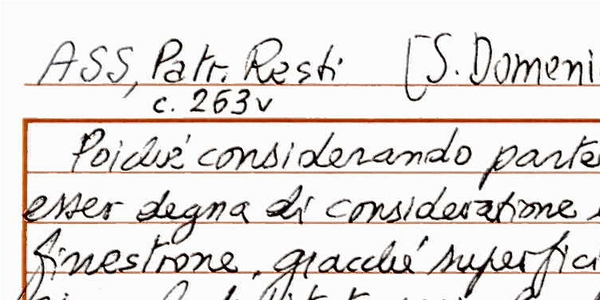 ASS, Patr. Resti [S. Domeni
c. 263v
Poiché considerando parte
esser degna di consideratione
finestrone, giacché superfici